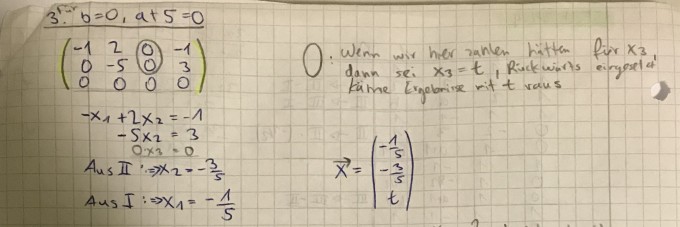 3. für b=0, a+5=0
-1 2 0 -1
0 -5 0 3
0 0 0 0
O: Wenn wir hier zahlen hätten für x₃,
dann sei x₃ = t, Rückwärts eingesetzt
käme Ergebnisse mit t raus
-x₁ + 2x₂ = -1
-5x₂ = 3
0x₃ = 0
Aus II :⇒ x₂ = -3/5
Aus I :⇒ x₁ = -1/5
x⃗ = (-1/5, -3/5, t)